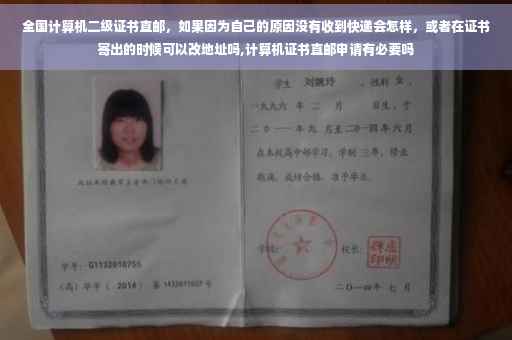 全国计算机二级证书直邮，如果因为自己的原因没有收到快递会怎样，或者在证书
寄出的时候可以改地址吗,计算机证书直邮申请有必要吗
学生 刘婉玲 ,性别 女 ,
一九九六 年 二 月 日生，于
二〇一一年九 月至二〇一四年六月
在本校高中部学习，学制 三年，修业
期满，成绩合格，准予毕业。
学校： 校长：
学号： G1132010755
（高）毕字（ 2014 ）第 1432011027 号
二〇一四年 七 月